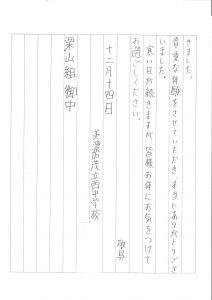 きました。
貴重な体験をさせていただき、本当にありがとうござ
いました。
寒い日が続きますが、皆様お体にお気をつけて
お過ごしください。
敬具
十二月十四日
美濃加茂市立西中学校
栗山組 御中